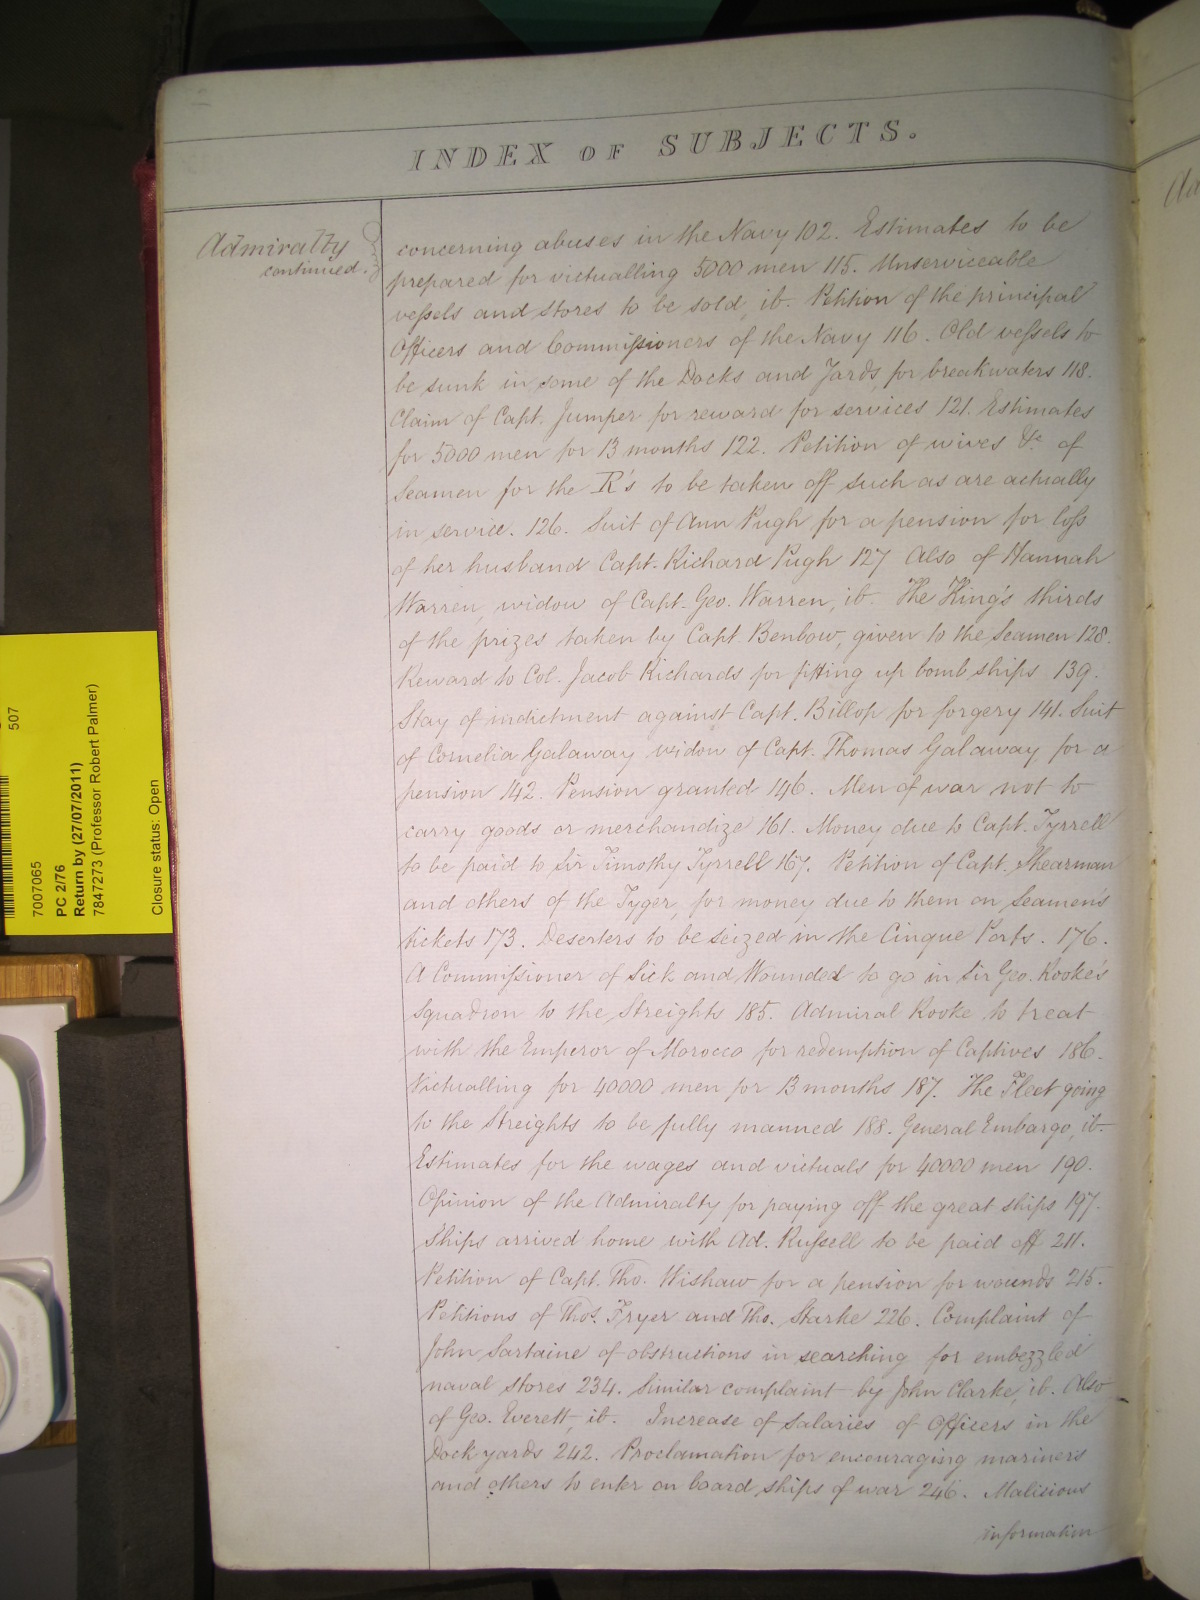 INDEX OF SUBJECTS.
Admiralty
continued.
concerning abuses in the Navy 102. Estimates to be
prepared for victualling 5000 men 115. Unserviceable
vessels and stores to be sold, ib. Petition of the principal
Officers and Commissioners of the Navy 116. Old vessels to
be sunk in some of the Docks and Yards, for breakwaters 118.
Claim of Capt. Jumper for reward for services 121. Estimates
for 5000 men for 13 months 122. Petition of wives &c. of
Seamen for the R's to be taken off such as are actually
in service. 126. Suit of Ann Pugh for a pension for loss
of her husband Capt. Richard Pugh 127 Also of Hannah
Warren, widow of Capt. Geo. Warren, ib. The King's thirds
of the prizes taken by Capt. Benbow, given to the Seamen 128.
Reward to Col. Jacob Richards for fitting up bomb ships 139.
Stay of indictment against Capt. Billop for forgery 141. Suit
of Cornelia Galaway widow of Capt. Thomas Galaway, for a
pension 142. Pension granted 146. Men of war not to
carry goods or merchandize 161. Money due to Capt. Tyrrell
to be paid to Sir Timothy Tyrrell 167. Petition of Capt. Shearman
and others of the Tyger, for money due to them on Seamen's
tickets 173. Deserters to be seized in the Cinque Ports. 176.
A Commissioner of Sick and Wounded to go in Sir Geo. Rooke's
Squadron to the Streights 185. Admiral Rooke to treat
with the Emperor of Morocco for redemption of Captives 186.
Victualling for 40000 men for 13 months 187. The Fleet going
to the Streights to be fully manned 188. General Embargo, ib.
Estimates for the wages and victuals for 40000 men 190.
Opinion of the Admiralty for paying off the great ships 197.
Ships arrived home with Ad. Russell to be paid off 211.
Petition of Capt. Tho. Wishaw for a pension for wounds 215.
Petitions of Thos. Fryer and Tho. Starke 226. Complaint of
John Sartaine of obstructions in searching for embezzled
naval stores 234. Similar complaint by John Clarke, ib. Also
of Geo. Everett, ib. Increase of salaries of Officers in the
Dock yards 242. Proclamation for encouraging mariners
and others to enter on board ships of war 246. Malicious
information
507
7007065
PC 2/76
Return by (27/07/2011)
7847273 (Professor Robert Palmer)
Closure status: Open